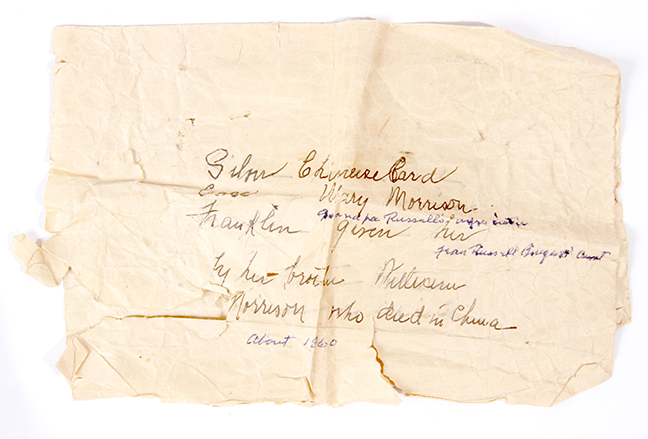 Silver Chinese Card
Case Mary Morrison
Grandpa Russell's sister
Franklin given her
Fran Russell Aunt
by her brother William
Morrison who died in China
About 1860